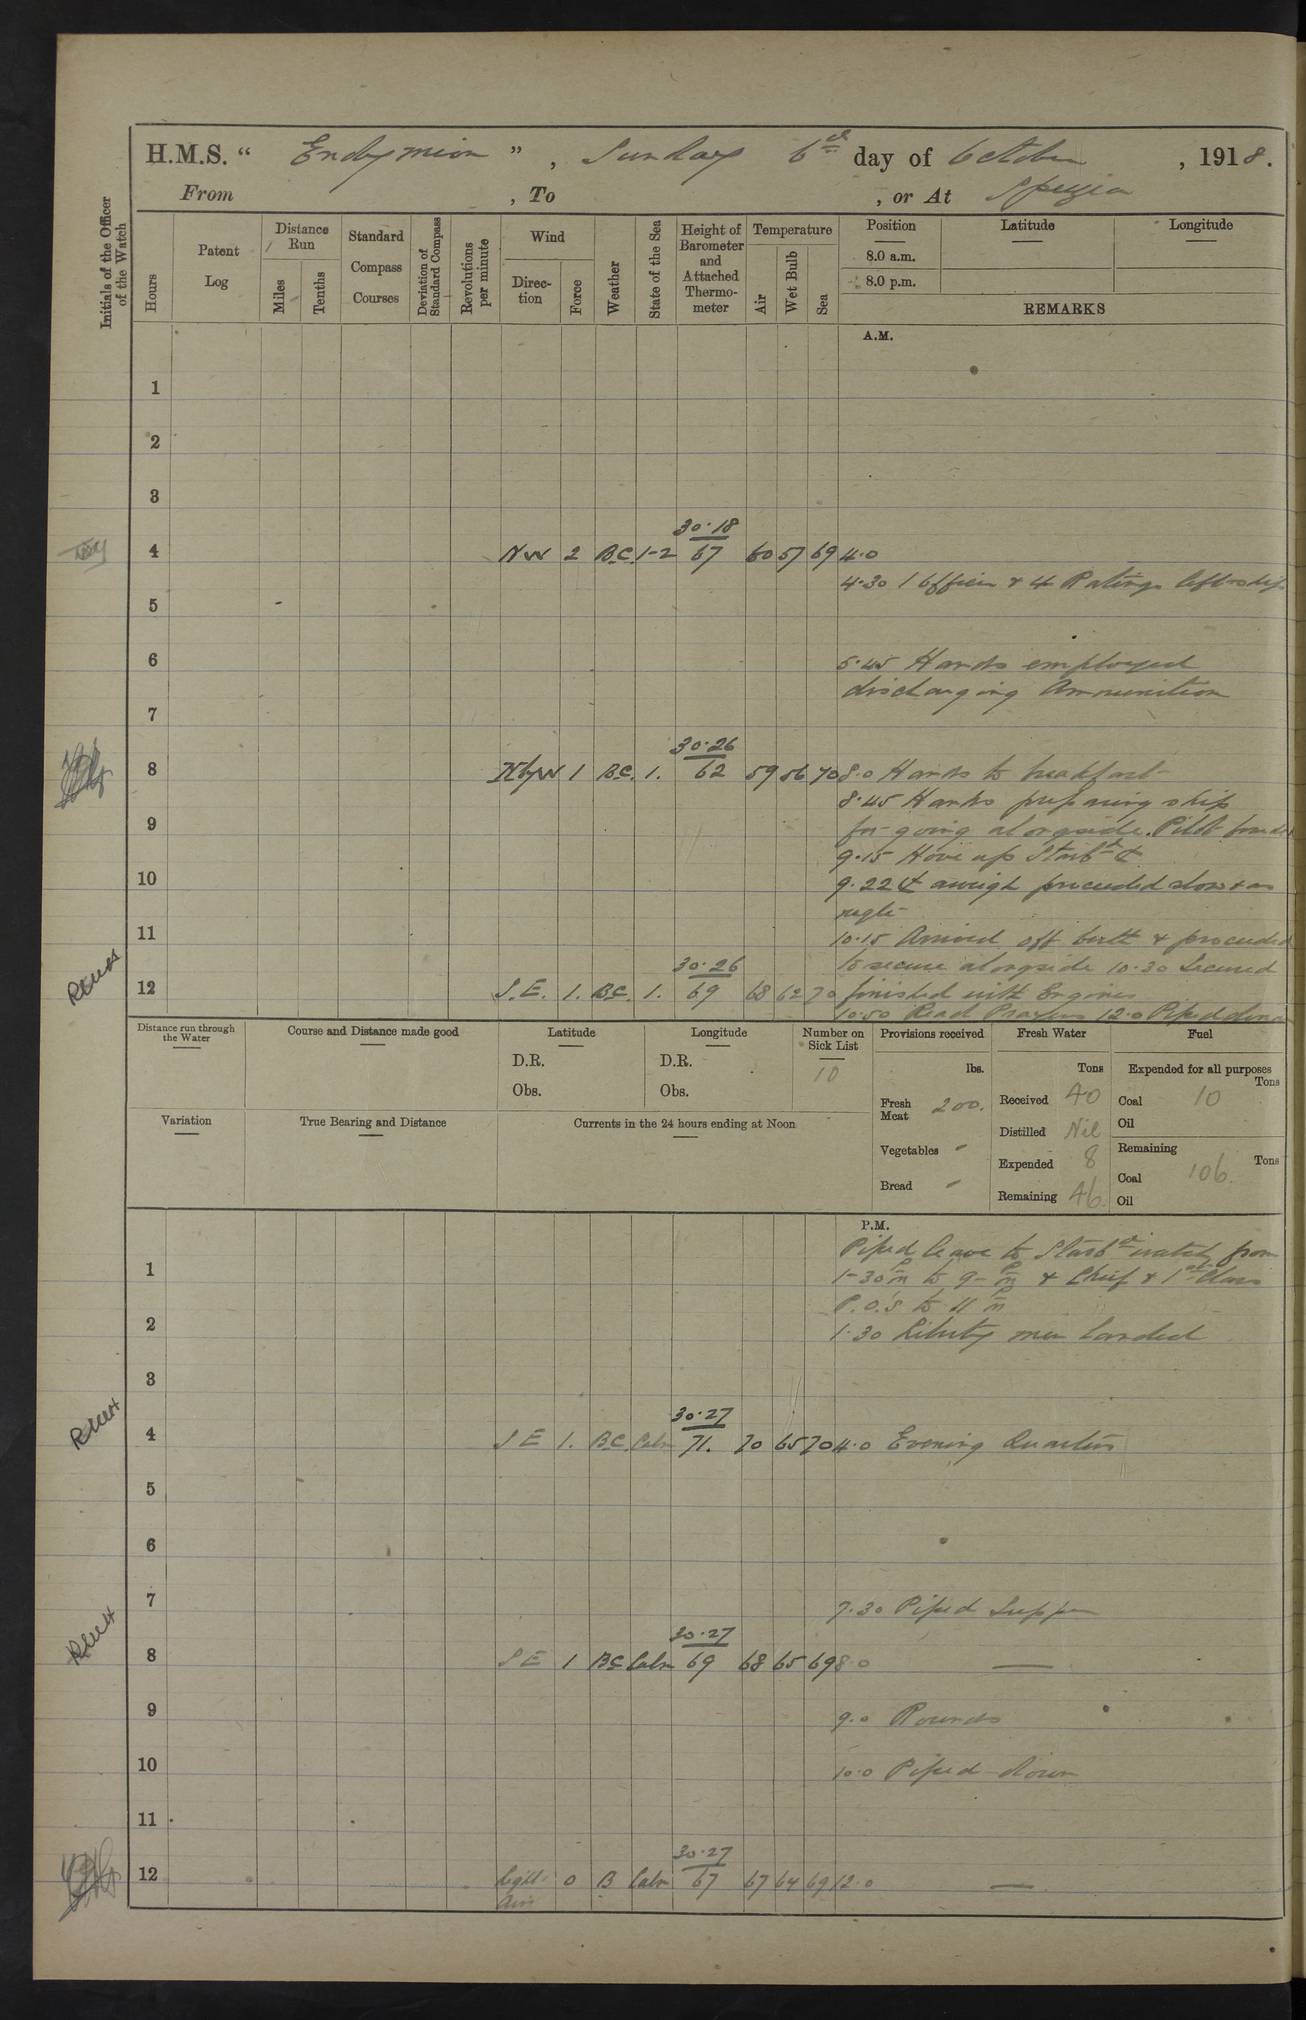 H.M.S. “ Endymion ” , Sunday 6th day of October , 1918.
From , To , or At Spezia
Initials of the Officer of the Watch
Hours
Patent Log
Distance Run
Miles
Tenths
Standard Compass Courses
Deviation of Standard Compass
Revolutions per minute
Wind
Direction
Force
Weather
State of the Sea
Height of Barometer and Attached Thermometer
Temperature
Air
Wet Bulb
Sea
Position
Latitude
Longitude
8.0 a.m.
8.0 p.m.
REMARKS
A.M.
1
2
3
30.18
4 NW 2 B.C. 1-2 67 60 57 69 4.0
4.30 1 Officer & 4 Ratings left ship
5
6 5.45 Hands employed
discharging Ammunition
7
30.26
8 NbyW 1 B.C. 1. 62 59 56 70 8.0 Hands to breakfast
8.45 Hands preparing ship
9 for going alongside. Pilot
9.15 Hove up Starbd ⚓
10 9.22 ⚓ aweigh proceeded slow & as
regte
11 10.15 Arrived off berth & proceeded
30.26 to secure alongside 10.30 Secured
12 S.E. 1. B.C. 1. 69 68 62 70 finished with Engines
10.50 Read Prayers 12.0 Piped dinner
Distance run through the Water
Course and Distance made good
Latitude
D.R.
Obs.
Longitude
D.R.
Obs.
Number on Sick List
10
Provisions received
lbs.
Fresh Meat 200.
Vegetables "
Bread "
Fresh Water
Tons
Received 40
Distilled Nil
Expended 8
Remaining 46.
Fuel
Expended for all purposes
Tons
Coal 10
Oil
Remaining
Tons
Coal 106.
Oil
Variation
True Bearing and Distance
Currents in the 24 hours ending at Noon
P.M.
Piped leave to Starbd watch from
1 1-30 pm to 9- pm & Chief & 1st Class
P.O.'s to 11 pm
2 1.30 Liberty men landed
3
30.27
4 S E 1. B.C. Calm 71. 70 65 70 4.0 Evening Quarters
5
6
7 7.30 Piped Supper
30.27
8 S E 1 BC Calm 69 68 65 69 8.0 —
9 9.0 Rounds
10 10.0 Piped down
11
30.27
12 Light Airs 0 B Calm 67 67 64 69 12.0 —